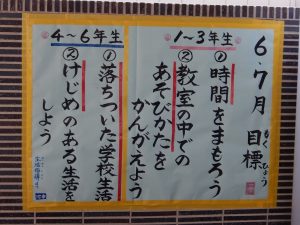 6・7月 目標
もくひょう
1~3年生
① 時間をまもろう
② 教室の中での
あそびかたを
かんがえよう
4~6年生
① 落ちついた学校生活
② けじめのある生活を
しよう